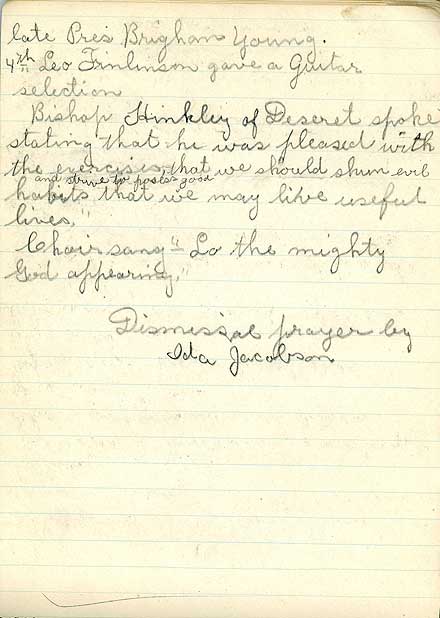 late Pres Brigham Young.
4th Leo Finlinson gave a Guitar
selection
Bishop Hinkley of Deseret spoke
stating that he was pleased with
the exercises, "that we should shun evil
and strive to posess good
habits that we may live useful
lives."
Choir sang "Lo the mighty
God appearing,"
Dismissal prayer by
Ida Jacobson